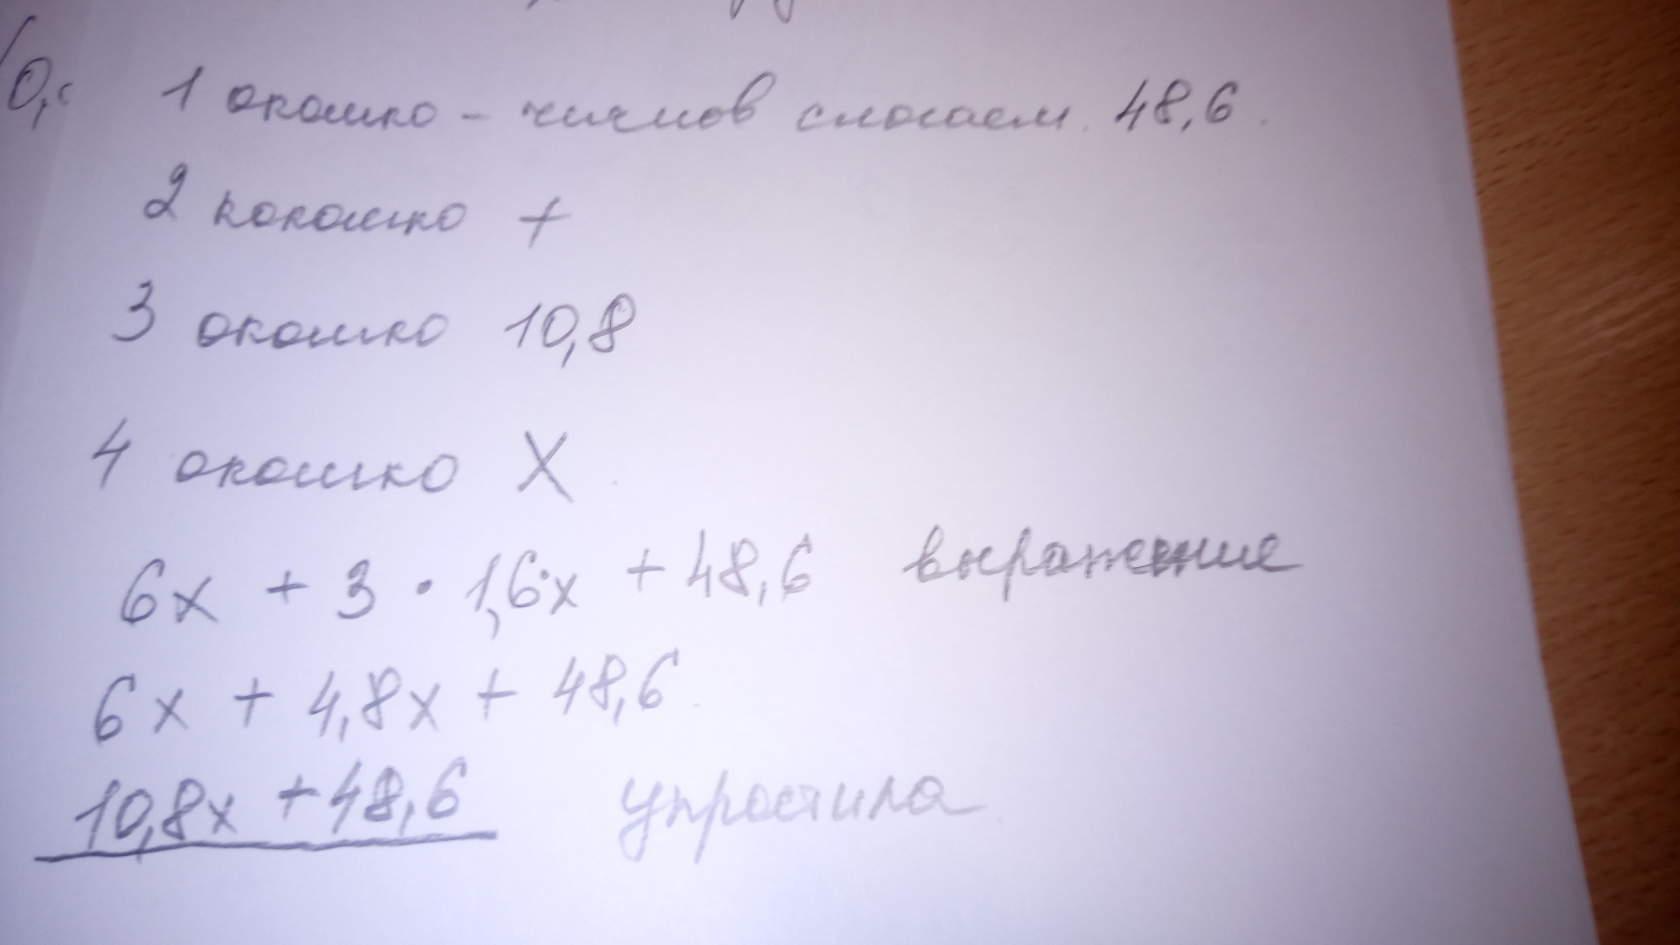 0,
1 окошко - числов слогаем. 48,6.
2 кокошко +
3 окошко 10,8
4 окошко X
6x + 3 · 1,6·x + 48,6 выражение
6x + 4,8x + 48,6
10,8x + 48,6 упростила